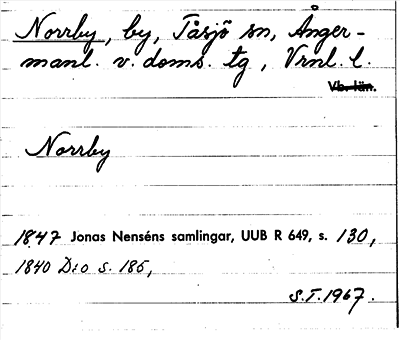 Norrby, by, Tåsjö sn, Ånger-
manl. v. doms. tg, Vrnl. l.
Vb. län.
Norrby
1847 Jonas Nenséns samlingar, UUB R 649, s. 130,
1840 D:o s. 185,
S.T. 1967.